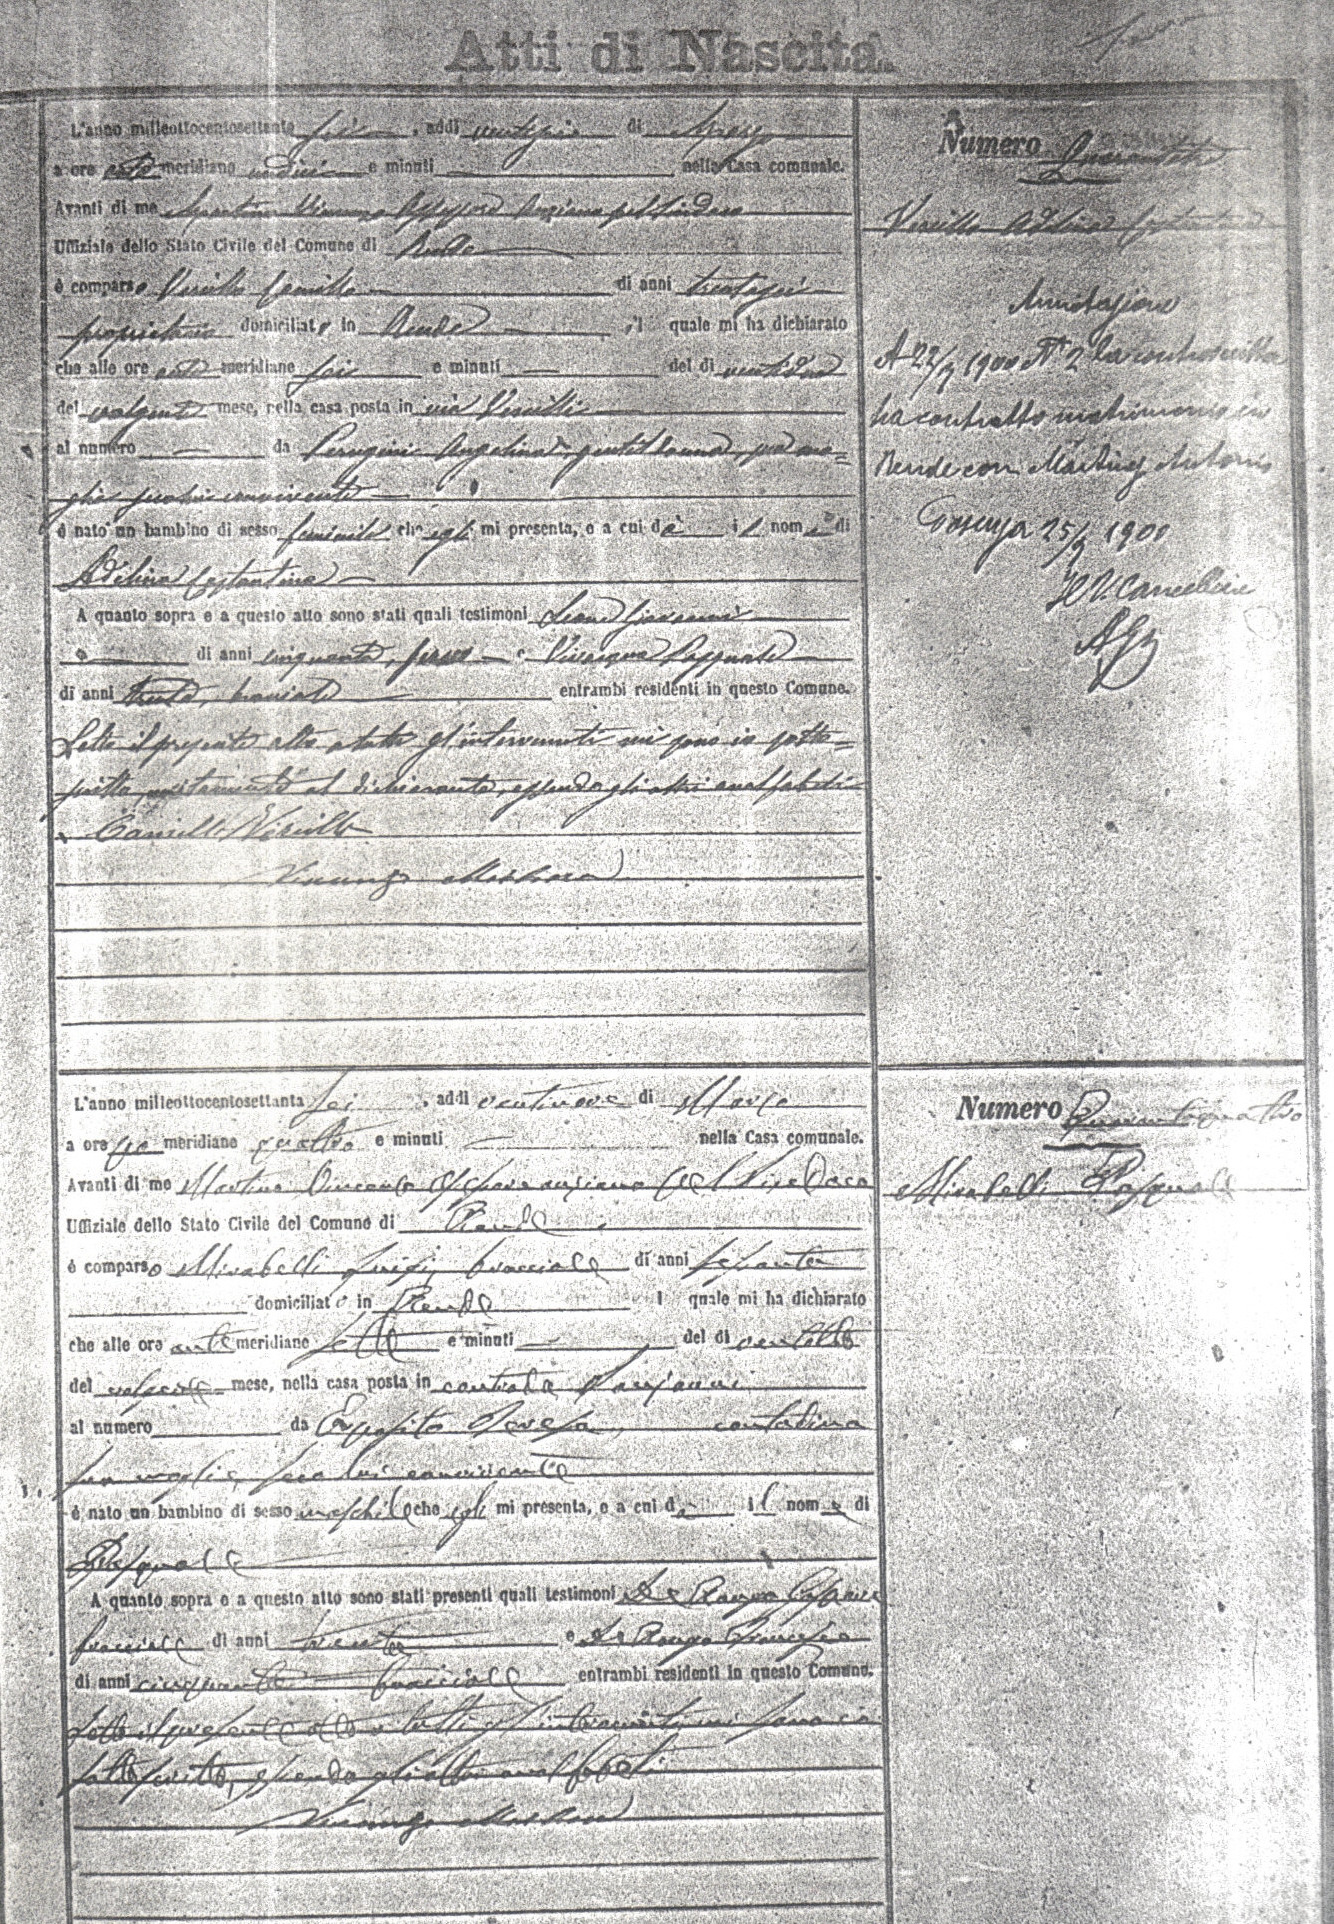 Atti di Nascita
L'anno milleottocentosettanta sei, addì ventisei di Marzo
a ore ante meridiane undici e minuti nella Casa comunale.
Avanti di me Vincenzo Assessore Anziano pel Sindaco
Uffiziale dello Stato Civile del Comune di Rende
è comparso Vercillo Camillo di anni trentasei
proprietario domiciliato in Rende il quale mi ha dichiarato
che alle ore ante meridiane sei e minuti del dì ventidue
del volgente mese, nella casa posta in via Vercilli
al numero da Perugini Angelina gentildonna, sua mo=
glie seco lui convivente
è nato un bambino di sesso feminile che egli mi presenta, e a cui dà il nome di
Adelina Costantina
A quanto sopra e a questo atto sono stati quali testimoni Giovanni
di anni cinquanta, e Pasquale
di anni trenta, bracciale entrambi residenti in questo Comune.
Letto il presente atto a tutti gl'intervenuti mi sono io sotto=
scritto unitamente al dichiarante, essendo gli altri analfabeti
Camillo Vercillo
Vincenzo
Numero Quarantatre
Vercillo Adelina Costantina
Annotazione
A 22/9 1900 N° 2 la controscritta
ha contratto matrimonio in
Rende con Martinez Antonio
Cosenza 25/9 1900
Il V. Cancelliere
L'anno milleottocentosettanta sei, addì ventinove di Marzo
a ore po meridiane quattro e minuti nella Casa comunale.
Avanti di me Vincenzo Assessore anziano pel Sindaco
Uffiziale dello Stato Civile del Comune di Rende
è comparso Mirabelli Luigi, bracciale di anni sessanta
domiciliato in Rende il quale mi ha dichiarato
che alle ore ante meridiane sette e minuti del dì ventotto
del volgente mese, nella casa posta in contrada
al numero da Esposito Teresa, contadina
sua moglie, seco lui convivente
è nato un bambino di sesso maschile che egli mi presenta, e a cui dà il nome di
Pasquale
A quanto sopra e a questo atto sono stati presenti quali testimoni De Rango Gaspare
bracciale di anni trenta e De Rango Francesco
di anni cinquanta bracciale entrambi residenti in questo Comune.
Letto il presente atto a tutti gl'intervenuti mi sono io
sottoscritto, essendo gli altri analfabeti
Vincenzo
Numero Quarantaquattro
Mirabelli Pasquale